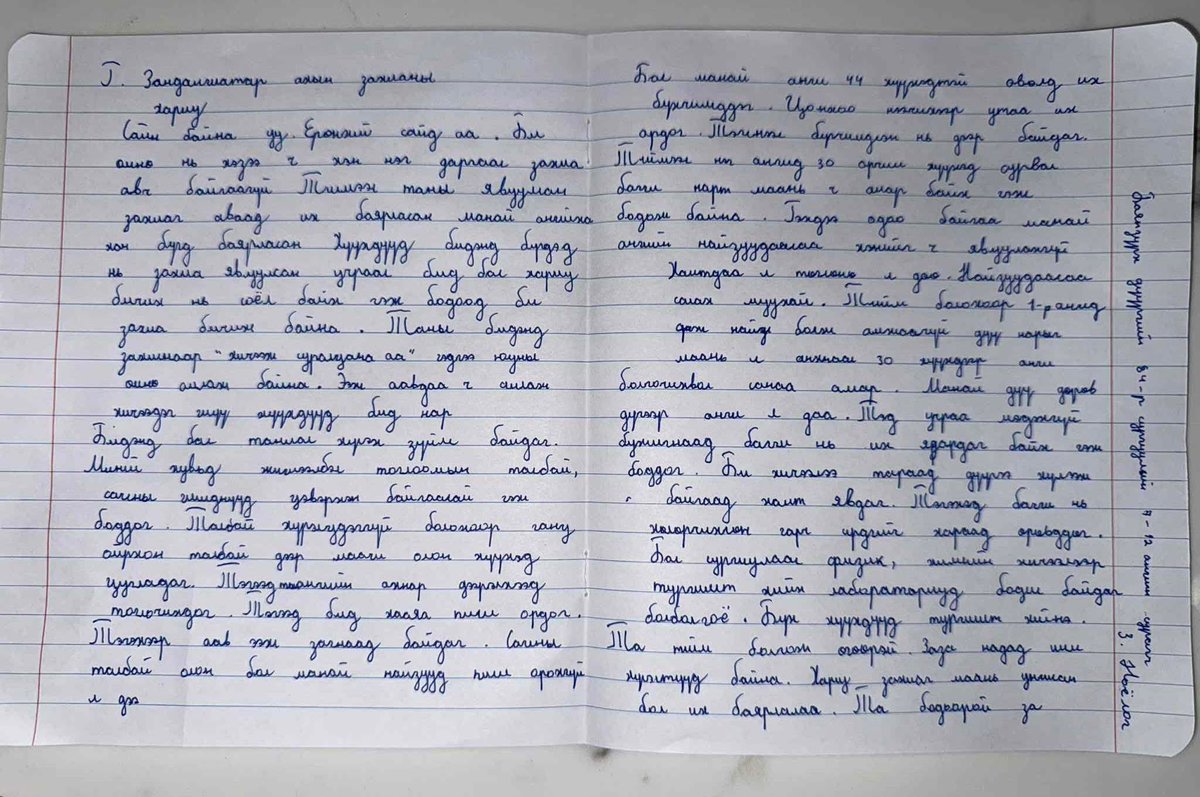 Г. Занданшатар ахын захианы
хариу
Сайн байна уу. Ерөнхий сайд аа. Би
өмнө нь хэзээ ч хэн нэг даргаас захиа
авч байгаагүй Тиймээс таны явуулсан
захиаг аваад их баярласан манай ангийхан
хүн бүрд баярласан Хүүхдүүд бидэнд бүгдэд
нь захиа явуулсан учраас бид бас хариу
бичих нь соёл байх гэж бодоод би
захиа бичиж байна. Таны бидэнд
захиснаар "хичээж суралцана аа" гэдгээ юуны
өмнө амлаж байна. Ээж аавдаа ч амлаж
хичээдэг шүү хүүхдүүд бид нар
Бидэнд бас таниас хүсэх зүйл байдаг.
Миний хувьд жишээлбэл тоглоомын талбай,
сагсны шийднүүд цэвэрхэн байгаасай гэж
боддог. Талбай хүрэлцдэггүй болохоор ганц
оирхон талбай дээр маш олон хүүхэд
цугладаг. Тэгээд томангийн ахнар дэрэлхээд
тоглочихдог. Тэгээд бид хаяа гэмш ордог.
Тэгэхээр аав ээж загнаад байдаг. Сагсны
талбай олон бол манай найзууд гэмш орохгүй
л дээ
Бас манай анги 44 хүүхэдтэй өвөлд их
бүгчимддэг. Цонхоо нээхээр утаа их
ордог. Тэгэнгээ бүгчимдсэн нь дээр байдаг.
Тиймээс нэг ангид 30 орчим хүүхэд сурвал
багш нарт маань ч амар байх гэж
бодож байна. Гэхдээ одоо байгаа манай
ангийн найзуудаасаа хэнийг ч явуулахгүй
Хамтдаа л төгсөнө л дөө. Найзуудаасаа
салах муухай. Тийм болохоор 1-р ангид
орж найз болж амжаагүй дүү нарыг
маань л анхнаас 30 хүүхэдээр анги
болгочихвол санаа амар. Манай дүү дөрөв
дүгээр анги л даа. Тэд учраа мэдэхгүй
бужигнаад багш нь их ядардаг байх гэж
боддог. Би хичээлээ тараад дүүгээ хүлээж
байгаад хамт явдаг. Тэгэхэд багш нь
хөлөрчихсөн гарч ирдгийг хараад өрөвддөг.
Бас сургуулиас физик, химийн хичээлээр
туршилт хийх лабораториуд бодит байдаг
болоосой. Бүх хүүхдүүд туршилт хийнэ.
Та тийм болгож өгөөрэй. Заза надад иим
хүсэлтүүд байна. Хариу захиаг маань уншсан
бол их баярлалаа. Та бодоорой за
Баянзүрх дүүргийн 84-р сургуулийн 7-12 ангийн сурагч
З. Ноёлог